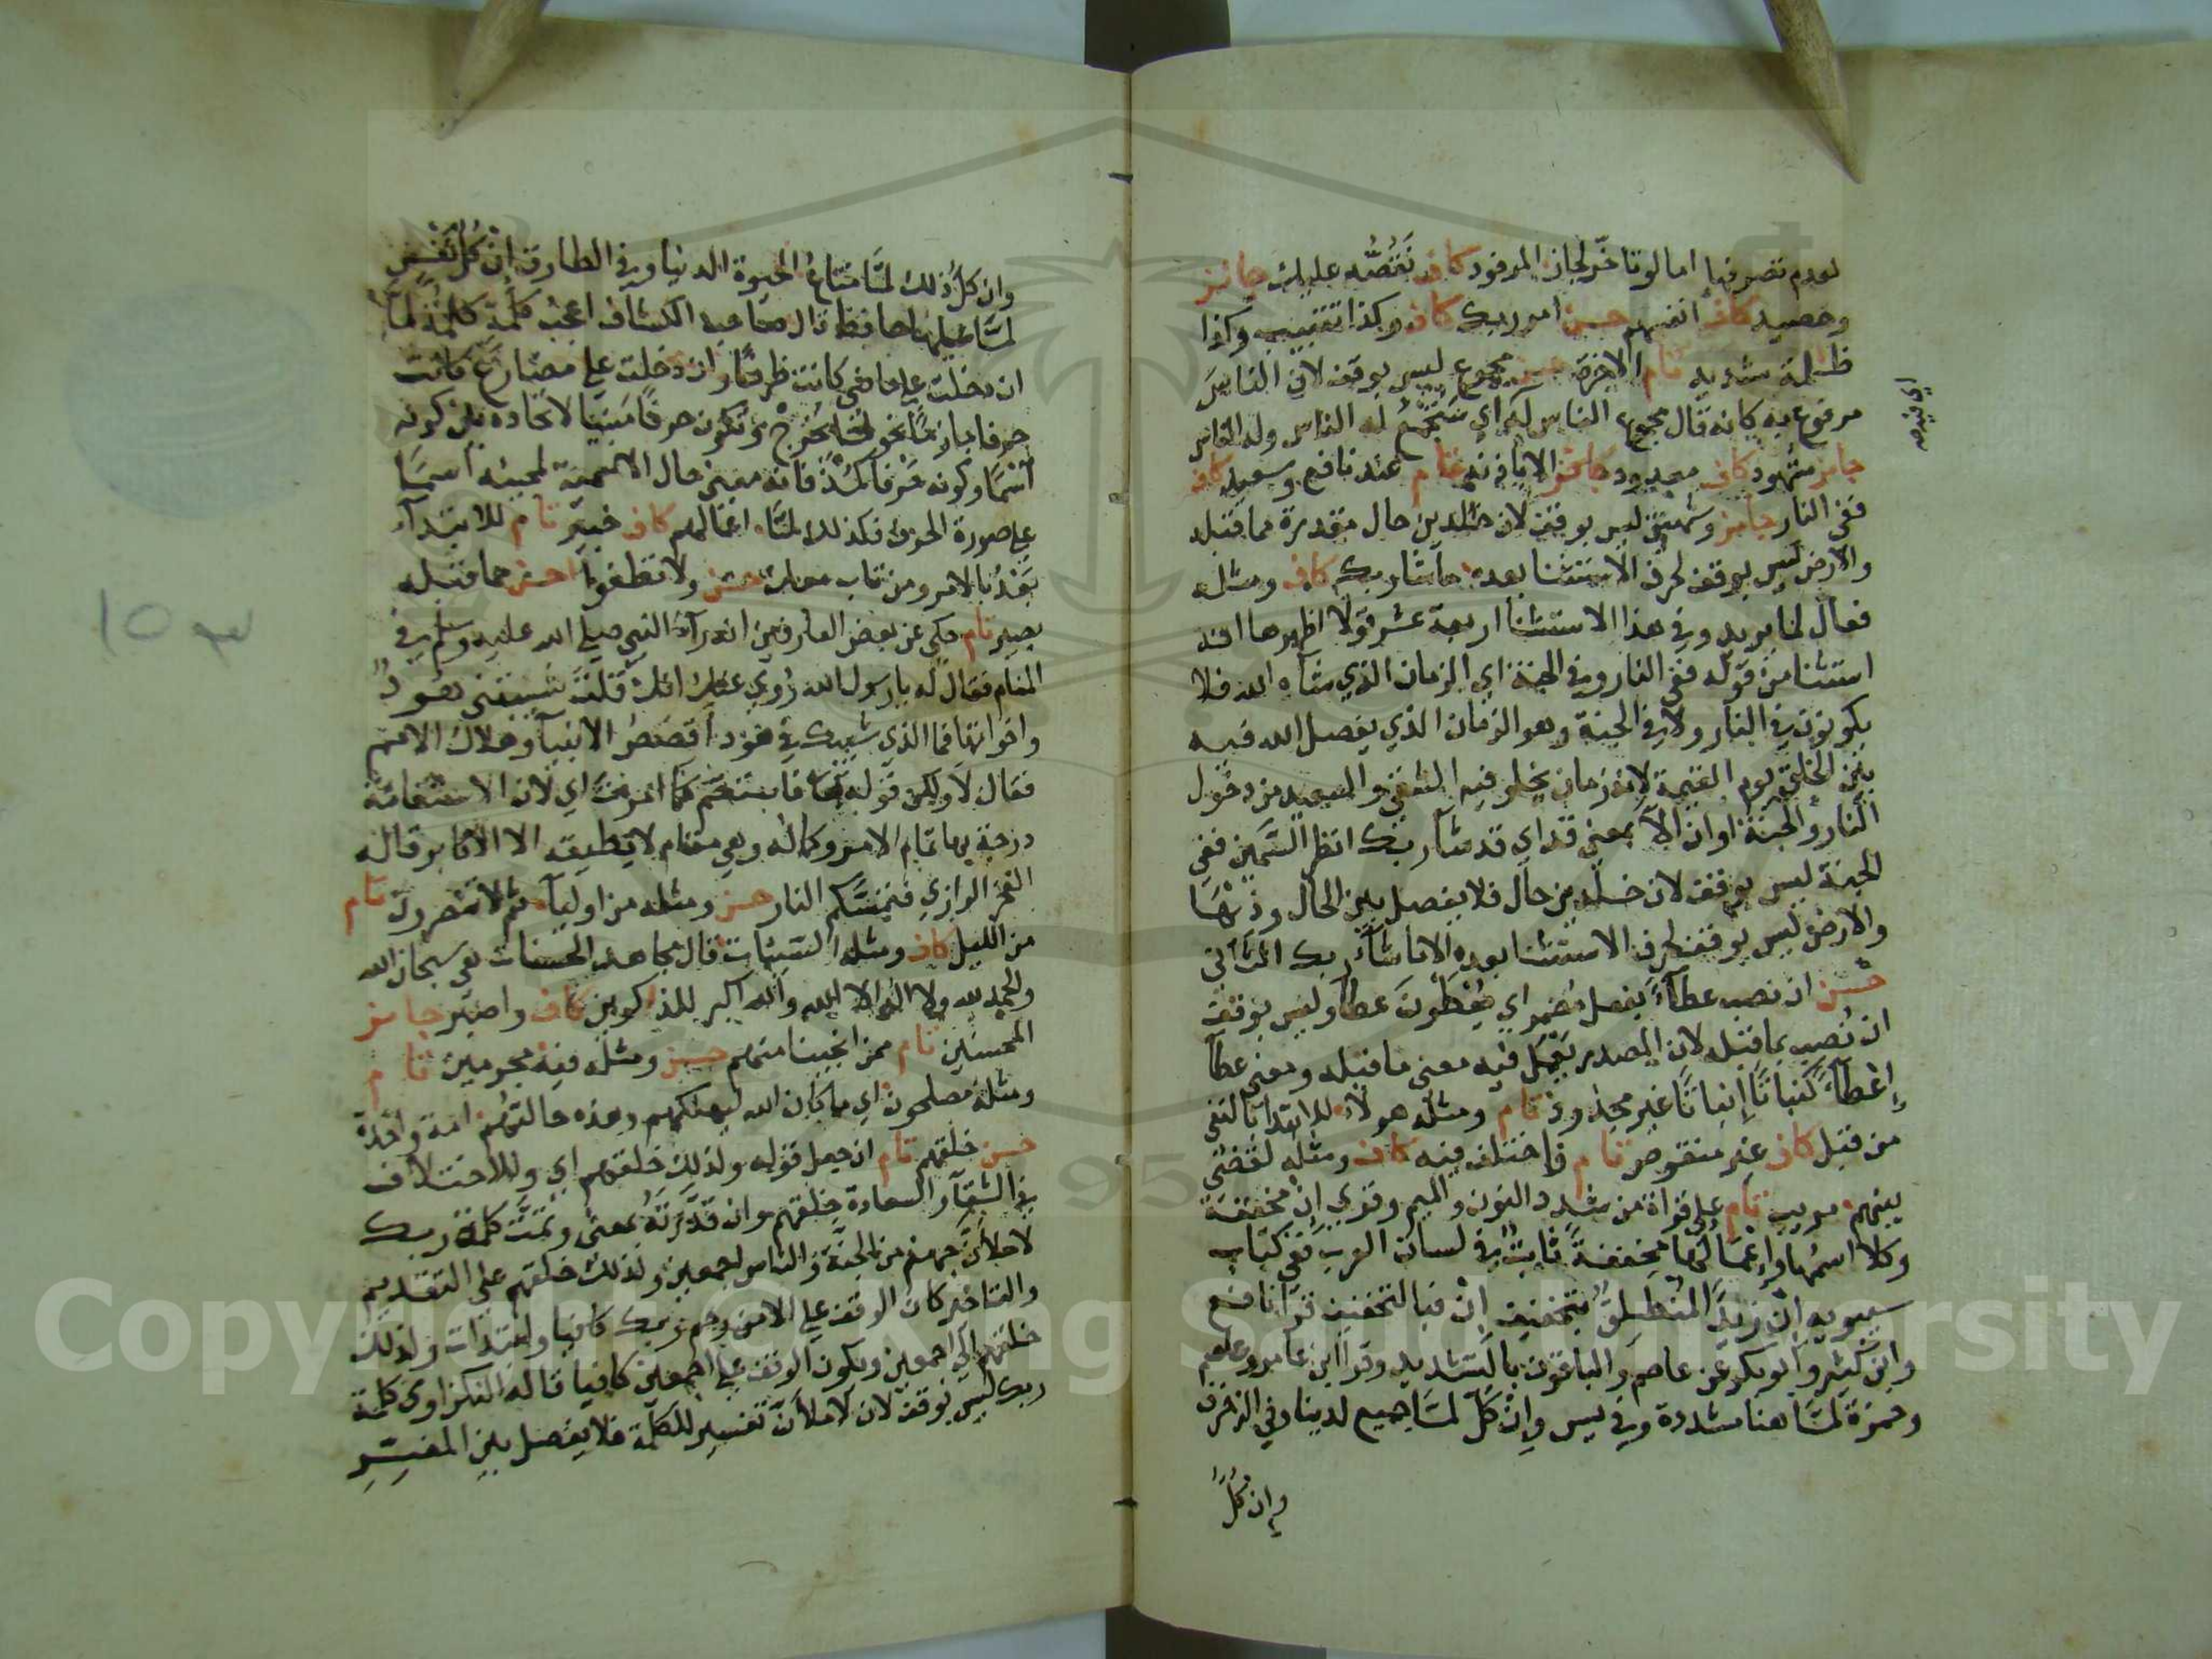 لعدم تصرفها اما لو تاخر لجاز المرفود كاف نقصه عليك جائز
وحصيد كاف انفسهم حسن امر ربك كاف وكذا تتبيب وكذا
ظلمة شديد تام الاخرة حسن مجموع ليس بوقف لان الناس
مرفوع به كانه قال مجموع الناس له اي ستجمع له الناس وله الناس
جائز مشهود كاف معدود جائز الا باذنه تام عند نافع وسعيد كاف
ففي النار جائز وشهيق ليس بوقف لان خالدين حال مقدرة مما قبله
والارض ليس بوقف لحرف الاستثنا بعده ما شا ربك كاف ومثله
فعال لما يريد وفي هذا الاستثنا اربعة عشر قولا اظهرها انه
استثنا من قوله ففي النار وفي الجنة اي الزمان الذي شاه الله فلا
يكونون في النار ولا في الجنة وهو الزمان الذي يفصل الله فيه
بين الخلق يوم القيمة لانه زمان يخلو فيه الشقي والسعيد من دخول
النار والجنة او ان الا بمعنى قد اي قد شا ربك انظر السمين ففي
الجنة ليس بوقف لان خلدين حال فلا يفصل بين الحال وذيها
والارض ليس بوقف لحرف الاستثنا بعده الا ما شاء ربك الثاني
حسن ان نصب عطآء بفعل مضمر اي يعطون عطآ وليس بوقف
ان نصب بما قبله لان المصدر يعمل فيه معنى ما قبله ومعنى عطآ
إعطآء كنباتا إنباتا غير مجذوذ تام ومثله هولاء للابتدا بالنفي
من قبل كاف غير منقوص تام فاختلف فيه كاف ومثله لقضي
بينهم مريب تام على قراة من شدد النون والميم وقري إن مخففة
وكلا اسمها وإعمالها مخففة ثابت في لسان العرب ففي كتاب
سيبويه إن زيدا المنطلق بتخفيف إن فبالتخفيف قرا نافع
وابن كثير وابو بكر عن عاصم والباقون بالتشديد وقرا ابن عامر وعاصم
وحمزة لما هنا مشددة وفي يس وإن كل لما جميع لدينا وفي الزخرف
وان كل
وان كل ذلك لما متاع الحيوة الدنيا وفي الطارق إن كل نفس
لما عليها حافظ قال صاحب الكشاف اعجب كلمة كلمة لما
ان دخلت على ماضي كانت ظرفا وان دخلت على مضارع كانت
حرفا جازما نحو لما يخرج وتكون حرفا مبنيا لاتحاده بين كونه
اسما وكونه حرفا كمذ فانه مبني حال الاسمية لمجيئه اسما
على صورة الحرف فكذلك لما اعمالهم كاف خبير تام للابتدآء
بعد بالامر ومن تاب معك حسن ولا تطغوا احسن مما قبله
بصير تام حكي عن بعض العارفين انه رآى النبي صلى الله عليه وسلم في
المنام فقال له يارسول الله روي عنك انك قلت شيبتني هود
واخواتها فما الذي شيبك في هود أقصص الانبيآ وهلاك الامم
فقال لا ولكن قوله تعا فاستقم كما امرت اي لان الاستقامة
درجة بها تمام الامر وكماله وهي مقام لا يطيقه الا الاكابر قاله
الفخر الرازي فتمسكم النار حسن ومثله من اوليآء ثم لا تنصرون تام
من الليل كاف ومثله السيئات قال مجاهد الحسنات هي سبحان الله
والحمد لله ولا اله الا الله والله اكبر للذاكرين كاف واصبر جائز
المحسنين تام ممن انجينا منهم حسن ومثله فيه مجرمين تام
ومثله مصلحون اي ما كان الله ليهلكهم وهذه حالتهم امة واحدة
حسن خلقهم تام ان جعل قوله ولذلك خلقهم اي وللاختلاف
في الشقآء والسعادة خلقهم وان قدرته بمعنى وتمت كلمة ربك
لاملأن جهنم من الجنة والناس اجمعين ولذلك خلقهم على التقديم
والتاخير كان الوقف على الا من رحم ربك كافيا وابتدات ولذلك
خلقهم الى اجمعين ويكون الوقف على اجمعين كافيا قاله النكزاوي كلمة
ربك ليس بوقف لان لاملأن تفسير للكلمة فلا يفصل بين المفسر
Copyright © King Saud University